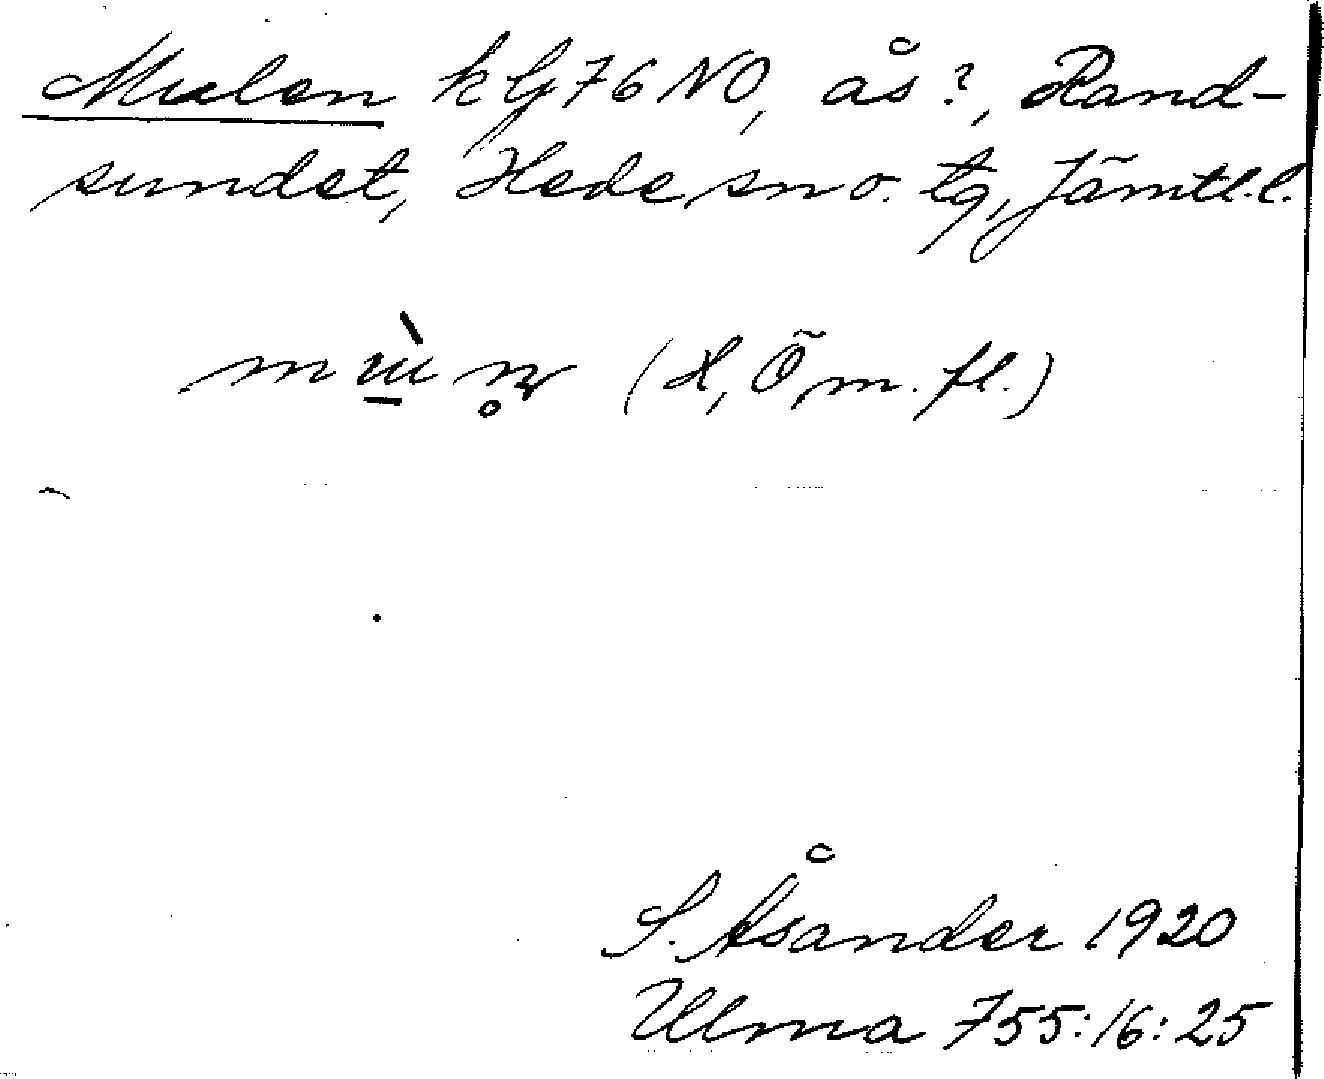 Mulen kG76NO, ås?, Rand-
sundet, Hede sn o. tg, Jämtl. l.
(H, Ö m. fl.)
S. Åsander 1920
Ulma 755:16:25